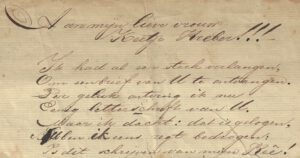 Aan mijn lieve vrouw
Keetje Hreber!!!
Ik had al een sterk verlangen,
Om een brief van U te ontvangen.
Zoo gelijk ontving ik nu
Eenen letterschrift van U.
Maar ik dacht: dat is gelogen,
ik eens regt bedrogen,
Is dit schrijven van mijn